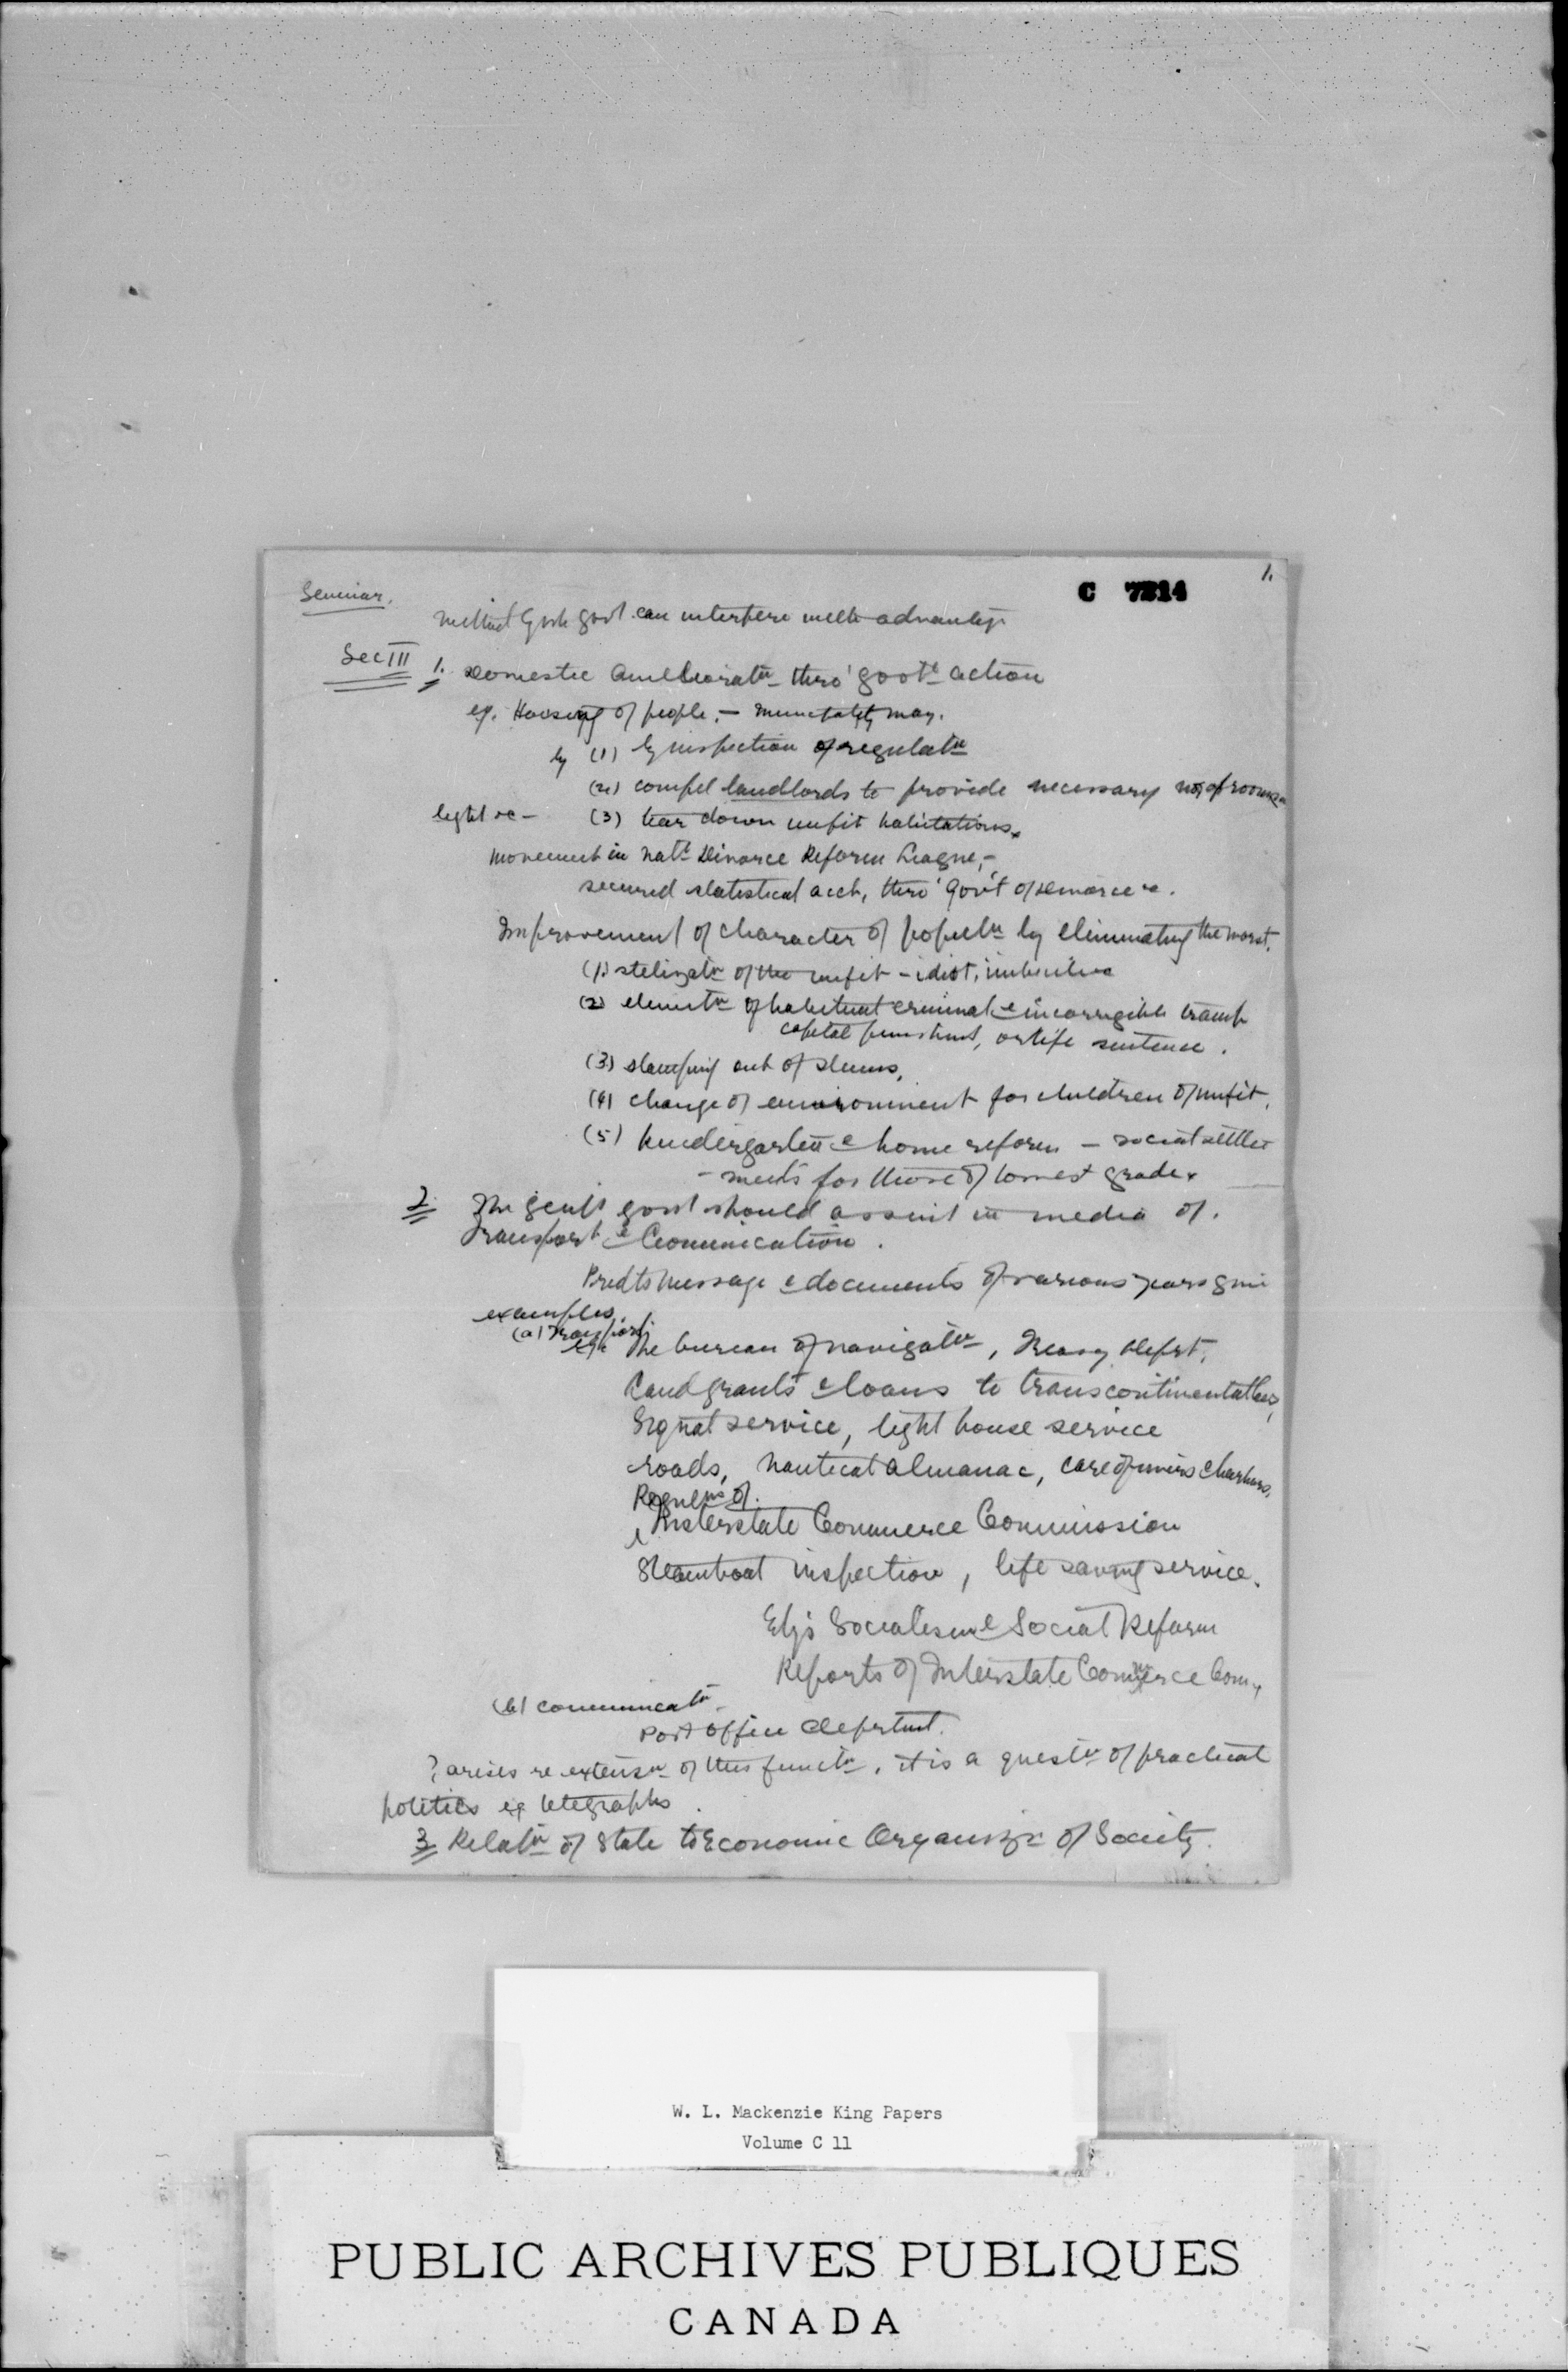 1.
C 7214
Seminar.
govt can interfere with advantage
Sec III 1. Domestic Amelioratn thro' govtl action
eg. Housing of people, – municipality may.
by (1) by inspection & regulatn
(2) compel landlords to provide necessary no. of rooms
light &c – (3) tear down unfit habitations.
movement in Natl Divorce Reform League, –
secured statistical acct, thro' Gov't of divorce &c.
Improvement of character of populn by eliminating the worst.
(1) sterilizatn of the unfit – idiot, imbecile
(2) eliminatn of habitual criminal & incorrigible tramp
capital punishmt, or life sentence.
(3) stamping out of slums,
(4) change of environment for children of unfit,
(5) kindergarten & home reform – social settle
– ments for those of lowest grade.
2. The genl govt should assist in media of.
Transport & Comunication.
Predts message & documents of various years give
examples.
(a) Transport
eg. The bureau of navigatn, Treasy Depst,
Land grants & loans to transcontinental
Signal service, light house service
roads, nautical almanac, care of rivers & harbors,
Regulns of.
Interstate Commerce Commission
Steamboat inspection, life saving service.
Ely's Socialism & Social Reform
Reports of Interstate Commerce Com.
(b) communicatn –
Post Office Depertmt.
? arises re extensn of this functn, it is a questn of practical
politics eg telegraphs.
3 Relatn of State to Economic Organizn of Society.
W. L. Mackenzie King Papers
Volume C 11
PUBLIC ARCHIVES PUBLIQUES
CANADA